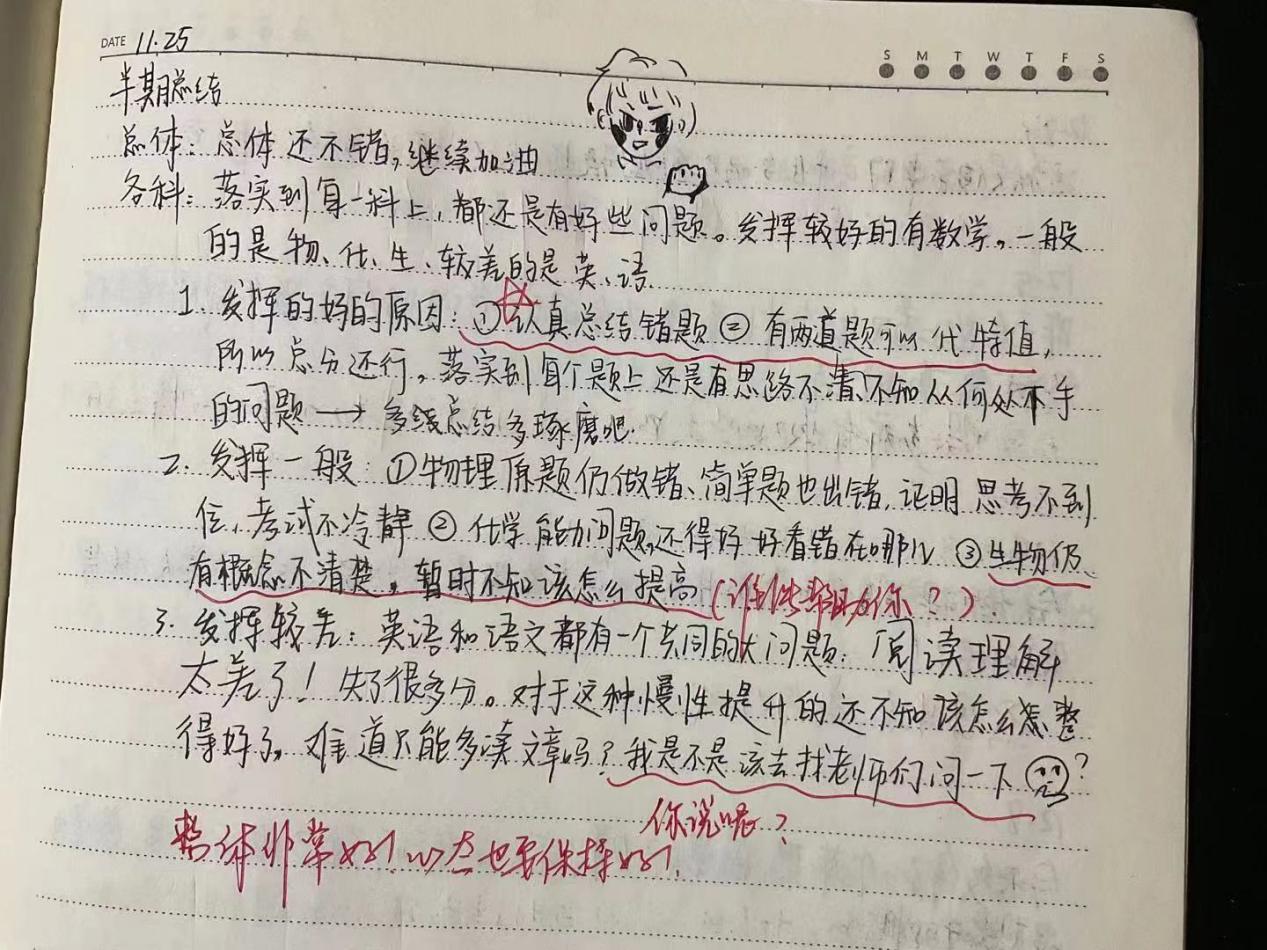 DATE 11.25
S M T W T F S
半期总结
总体：总体还不错，继续加油
各科：落实到每一科上，都还是有好些问题。发挥较好的有数学，一般
的是物、化、生、较差的是英、语.
1. 发挥的好的原因：①认真总结错题 ② 有两道题可以代特值，
所以总分还行。落实到每个题上还是有思路不清、不知从何处下手
的问题 → 多练总结多琢磨吧.
2. 发挥一般：①物理原题仍做错、简单题也出错，证明思考不到
位、考试不冷静 ② 化学能力问题，还得好好看错在哪儿 ③ 生物仍
有概念不清楚，暂时不知该怎么提高（谁能帮助你？）
3. 发挥较差：英语和语文都有一个共同的大问题：阅读理解
太差了！失了很多分。对于这种慢性提升的还不知该怎么怎整
得好了，难道只能多读文章吗？我是不是该去找老师们问一下？
你说呢？
整体非常好！心态也要保持好！